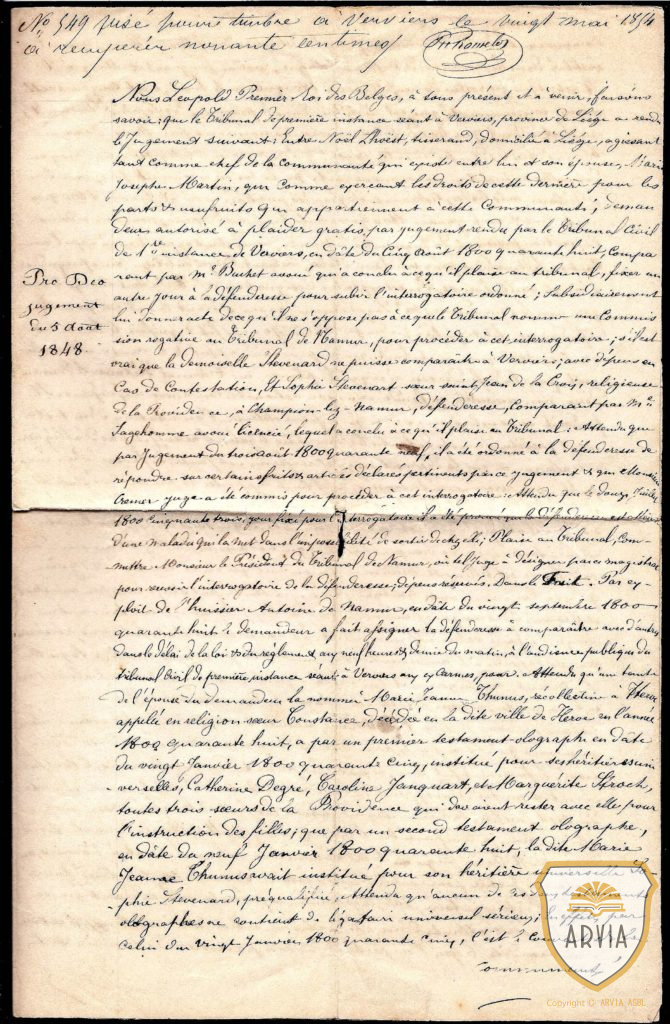 No 549 fusé pour timbre à Verviers le vingt mai 1854
à récupérer nonante centimes
Nous Léopold Premier Roi des Belges, à tous présent et à venir, faisons
savoir: que le Tribunal de première instance séant à Verviers, province de Liége a rendu
le Jugement suivant: Entre Noël Lhoëst, tisserand, domicilié à Liége, agissant
tant comme chef de la communauté qui existe entre lui et son épouse, Marie
Josephe Martin, que comme exerçant les droits de cette dernière pour les
parts & usufruits qui appartiennent à cette Communauté, deman
deur autorisé à plaider gratis, par jugement rendu par le Tribunal Civil
de 1re instance de Verviers, en date du Cinq Août 1800 quarante huit, Compa
rant par Me avoué qui a conclu à ce qu'il plaise au tribunal, fixer un
autre jour à la défenderesse pour subir l'interrogatoire ordonné; Subsidiairement
lui donner acte de ce qu'il ne s'oppose pas à ce que le Tribunal nomme une Commis
sion rogative au Tribunal de Namur, pour procéder à cet interrogatoire; s'il est
vrai que la demoiselle Stevenard ne puisse comparaître à Verviers; avec dépens en
Cas de Contestation, Et Sophie Stevenart sœur saint Jean de la Croix, religieuse
de la Providence, à Champion-lez-Namur, défenderesse, Comparant par Me
avoué licencié, lequel a conclu à ce qu'il plaise au Tribunal: Attendu que
par Jugement du trois août 1800 quarante neuf, il a été ordonné à la défenderesse de
répondre sur certains faits & articles déclarés pertinents par ce jugement & que Monsieur
Cremer juge a été commis pour procéder à cet interrogatoire: Attendu que le douze
1800 Cinquante trois, jour fixé pour l'interrogatoire il a été prouvé que la défenderesse est
d'une maladie qui la met dans l'impossibilité de sortir de chez elle; Plaise au Tribunal, Com-
mettre Monsieur le Président du Tribunal de Namur, ou tel Juge à désigner par ce magistrat
pour l'interrogatoire de la défenderesse; dépens réservés. Dans le Fait. Par ex-
ploit de l'huissier Antoine de Namur, en date du vingt septembre 1800
quarante huit le demandeur a fait assigner la défenderesse à comparaître avec d'autres
dans le délai de la loi & du règlement aux neuf heures & demie du matin, à l'audience publique du
tribunal Civil de première instance séant à Verviers aux ex Carmes, pour: Attendu qu'une tante
de l'épouse du demandeur la nommée Marie Jeanne Thunus, récollectine à
appellée en religion sœur Constance, décédée en la dite ville de Herve en l'année
1800 quarante huit, a par un premier testament olographe en date
du vingt Janvier 1800 quarante cinq, institué pour ses héritières uni
verselles, Catherine Degré, Caroline Janquart, et Marguérite
toutes trois sœurs de la Providence qui devaient rester avec elle pour
l'instruction des filles; que par un second testament olographe,
en date du neuf Janvier 1800 quarante huit, la dite Marie
Jeanne Thunus avait institué pour son héritière universelle So-
phie Stevenard, préqualifiée, Attendu qu'aucun de
olographes ne contient de légataire universel sérieux; qu'en effet par
celui du vingt Janvier 1800 quarante cinq, c'est
Pro Deo
jugement
du 5 août
1848
ARVIA
Copyright © ARVIA ASBL